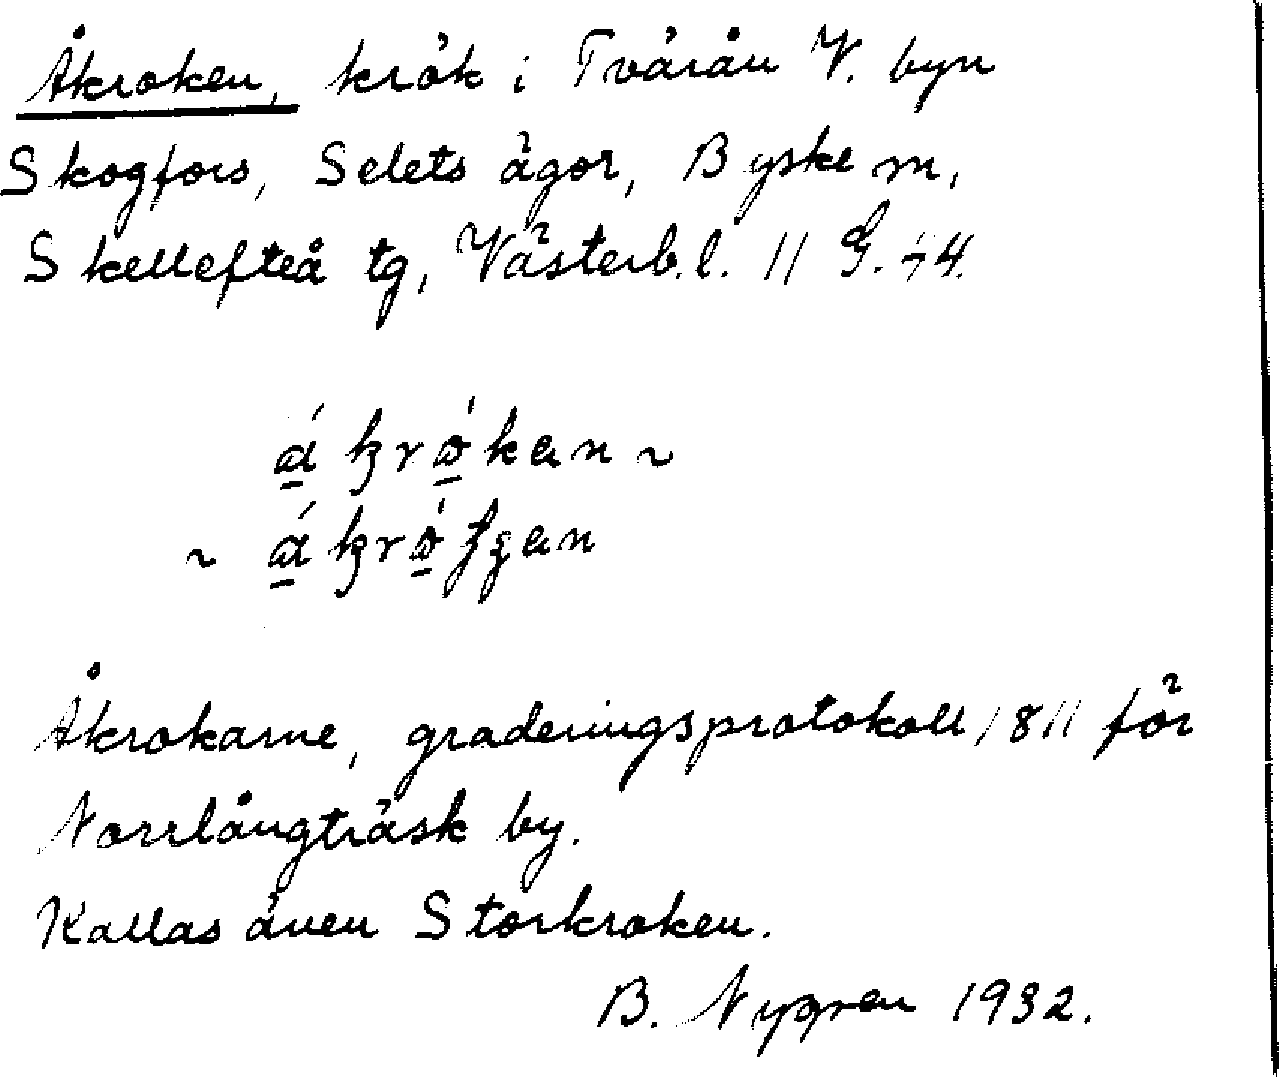 Åkroken, krök i Tvärån V. byn
Skogfors, Selets ägor, Byske m,
Skellefteå tg, Västerb.l. 11 G.
~
~
Åkrokarne, graderingsprotokoll 1811 för
Norrlångträsk by.
Kallas även Storkroken.
B. Nygren 1932.